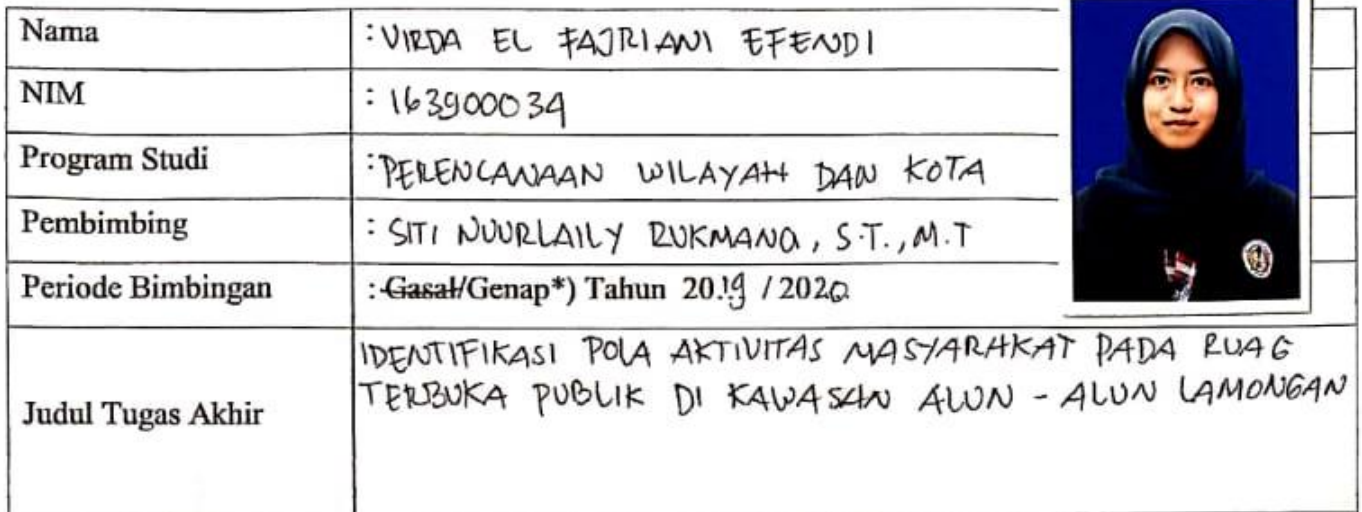 Nama : VIRDA EL FAJRIANI EFENDI
NIM : 163900034
Program Studi : PERENCANAAN WILAYAH DAN KOTA
Pembimbing : SITI NUURLAILY RUKMANA, S.T., M.T
Periode Bimbingan : Gasal/Genap*) Tahun 2019 / 2020
Judul Tugas Akhir IDENTIFIKASI POLA AKTIVITAS MASYARAKAT PADA RUAG
TERBUKA PUBLIK DI KAWASAN ALUN - ALUN LAMONGAN